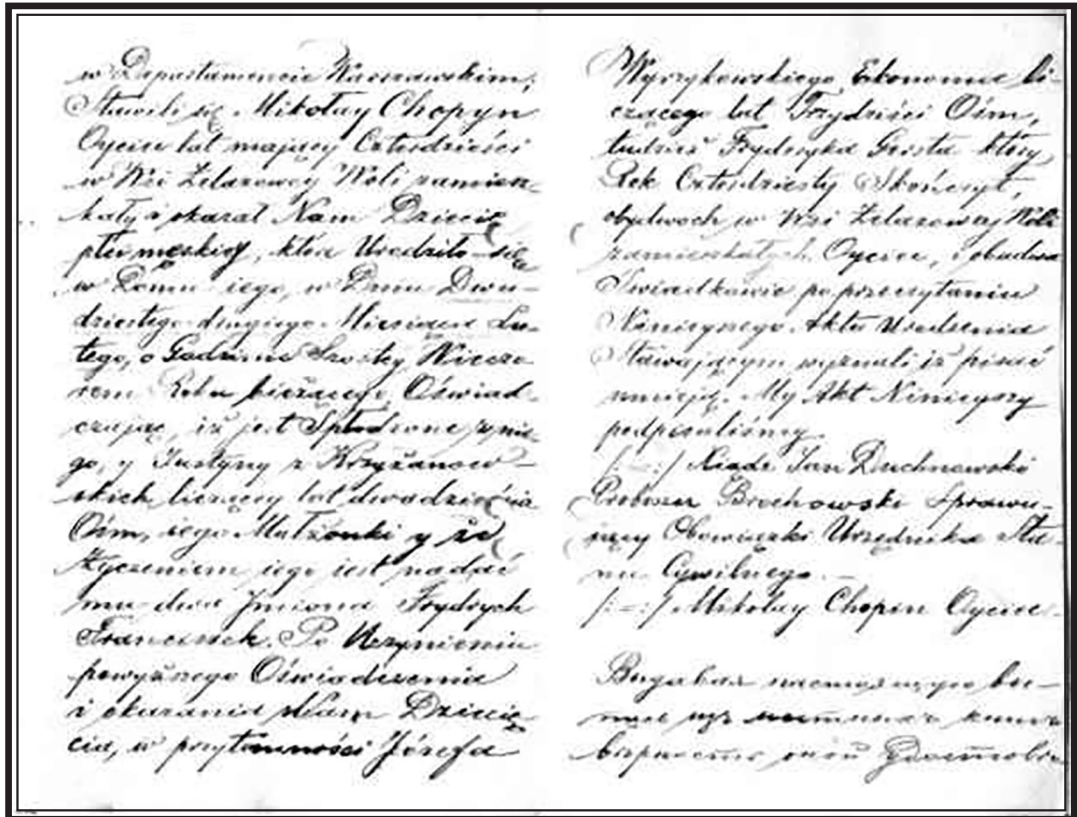 w Departamencie Warszawskim,
Stawili się Mikołay Chopyn
Oyciec lat maiący Czterdzieści
w Wsi Żelazowey Woli zamiesz-
kały i okazał Nam Dziecię
płci męskiey, które Urodziło się
w Domu iego, w Dniu Dwu-
dziestego drugiego Miesiąca Lu-
tego, o Godzinie Szostey Wieczo
rem Roku bieżącego, Oświad-
czaiąc, iż jest Spłodzone z nie-
go, y Justyny z Krzyżanow-
skich liczącey lat dwadzieścia
Ośm, iego Małżonki y że
Życzeniem iego iest nadać
mu dwa Jmiona Frydrych
Franciszek. Po Uczynieniu
powyższego Oświadczenia
i okazania Nam Dziecię-
cia, w przytomności Józefa
Wyrzykowskiego Ekonoma li-
czącego lat Trzydzieści Ośm,
tudzież Fryderyka Geszta który
Rok Czterdziesty Skończył,
obydwoch w Wsi Żelazowey Woli
zamieszkałych. Oyciec, i obadwa
Świadkowie po przeczytaniu
Ninieyszego Aktu Urodzenia
Stawaiącym wyznali iż pisać
umieią. My Akt Ninieyszy
podpisaliśmy.
/:-:/ Xiądz Jan Duchnowski
Proboszcz Brochowski Sprawu-
iący Obowiązki Urzędnika Sta-
nu Cywilnego. –
/:-:/ Mikołay Chopin Oyciec. –